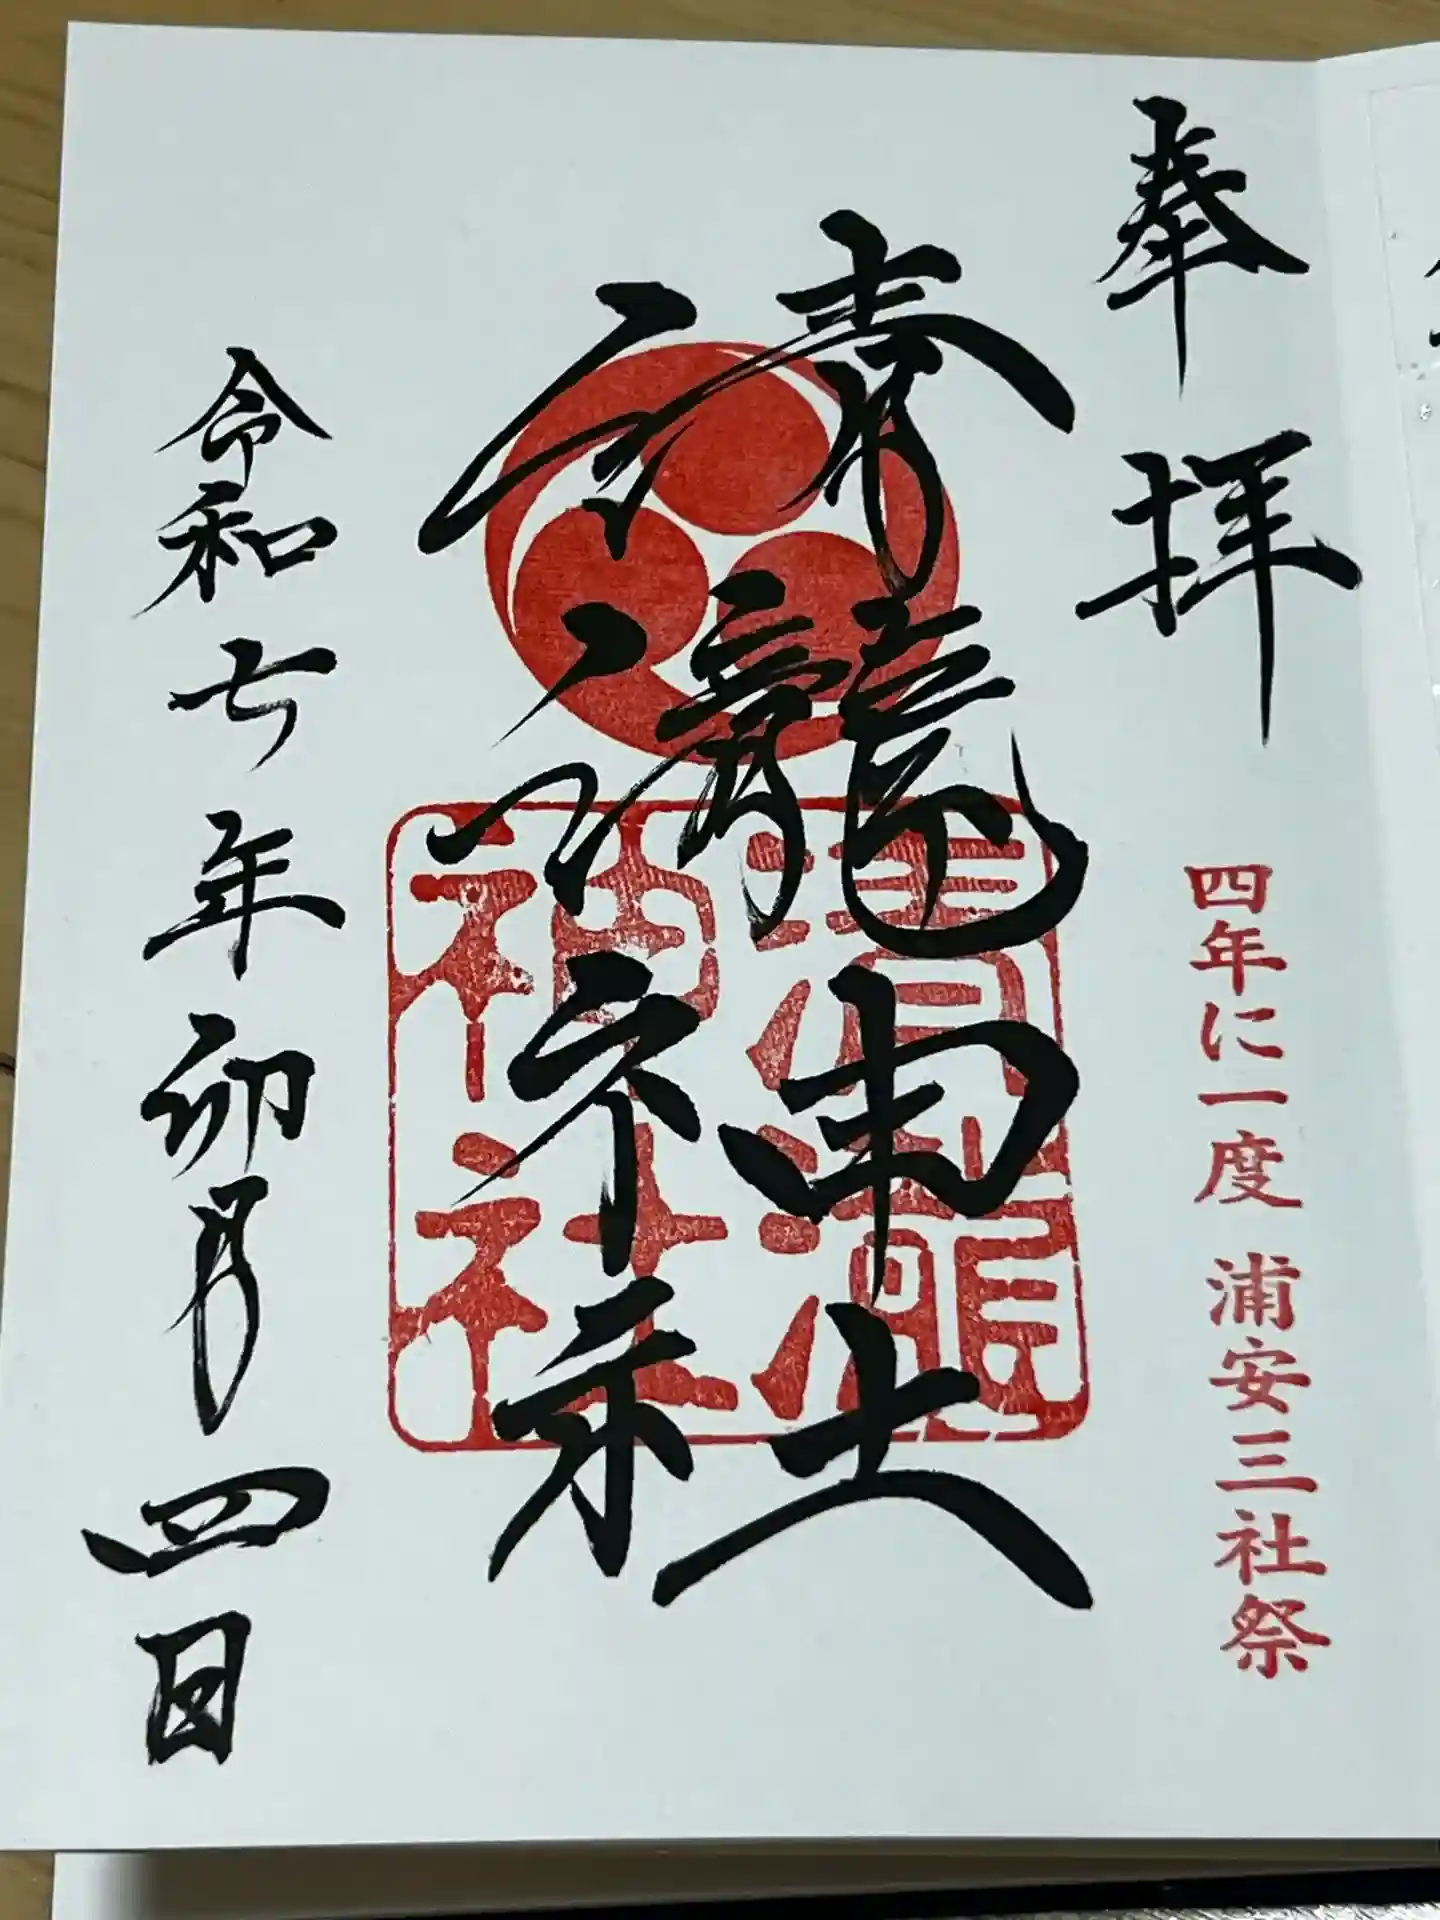 奉拝
四年に一度 浦安三社祭
清瀧神社
清瀧神社
令和七年卯月四日